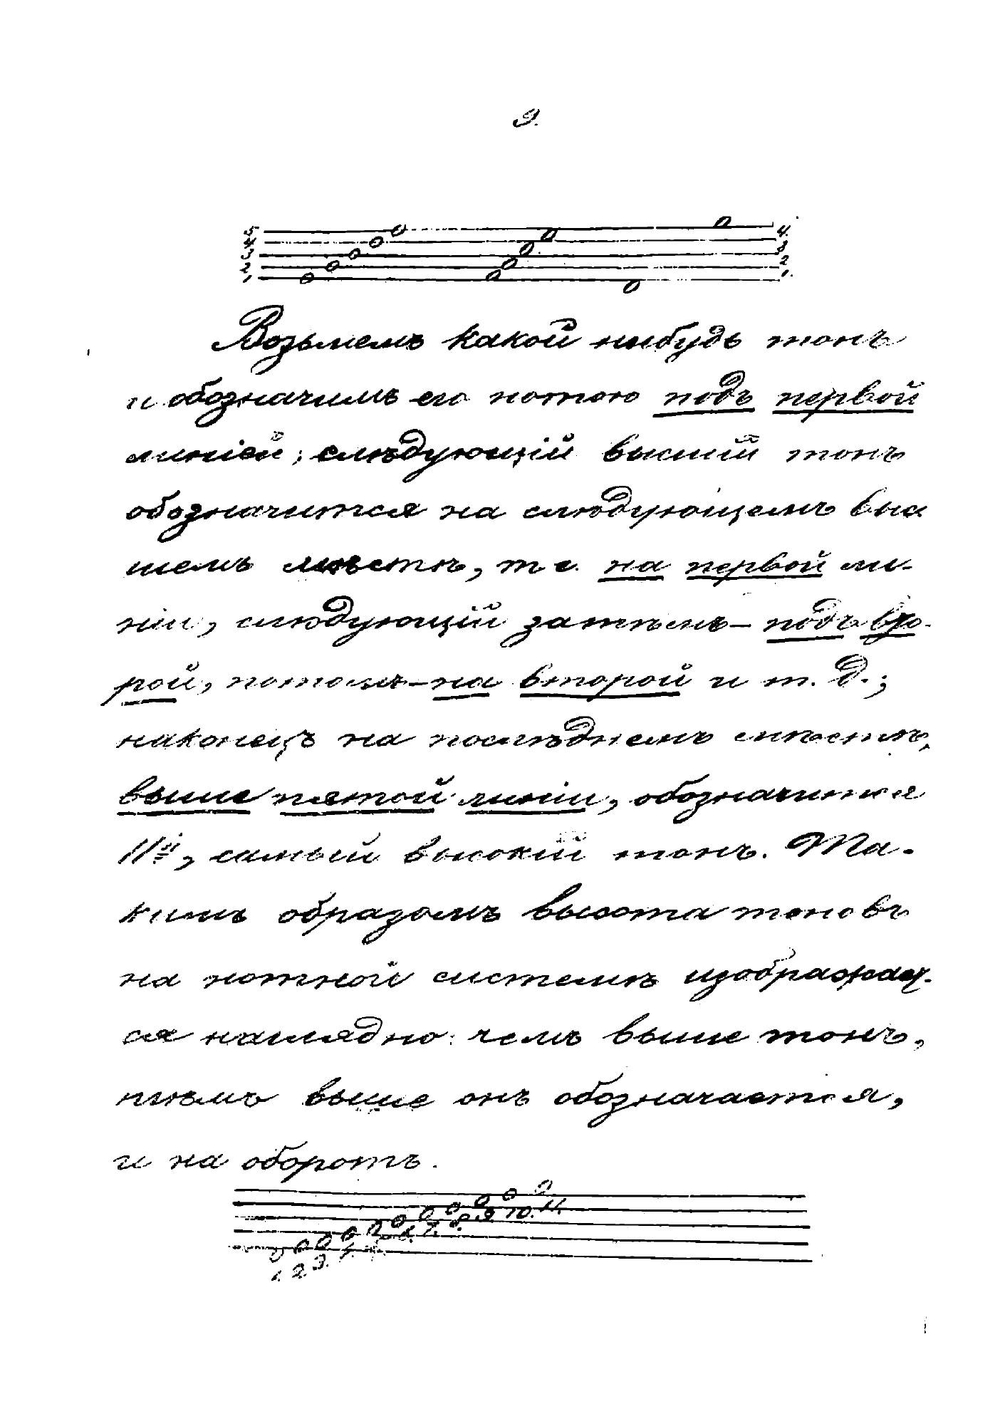 9.
5. 4.
4 3
3 2
2 1.
1.
Возьмемъ какой нибудь тонъ
и обозначимъ его нотою подъ первой
линіей; слѣдующій высшій тонъ
обозначится на слѣдующемъ выс
шемъ мѣстѣ, т е. на первой ли-
ніи, слѣдующій затѣмъ – подъ вто-
рой, потомъ – на второй и т. д.;
наконецъ на послѣднемъ мѣстѣ,
выше пятой линіи, обозначится
11й, самый высокій тонъ. Та-
кимъ образомъ высота тоновъ
на нотной системѣ изображает-
ся наглядно: чемъ выше тонъ,
тѣмъ выше онъ обозначается,
и на оборотъ.
1. 2 3. 4. 5. 6. 7. 8. 9. 10. 11.